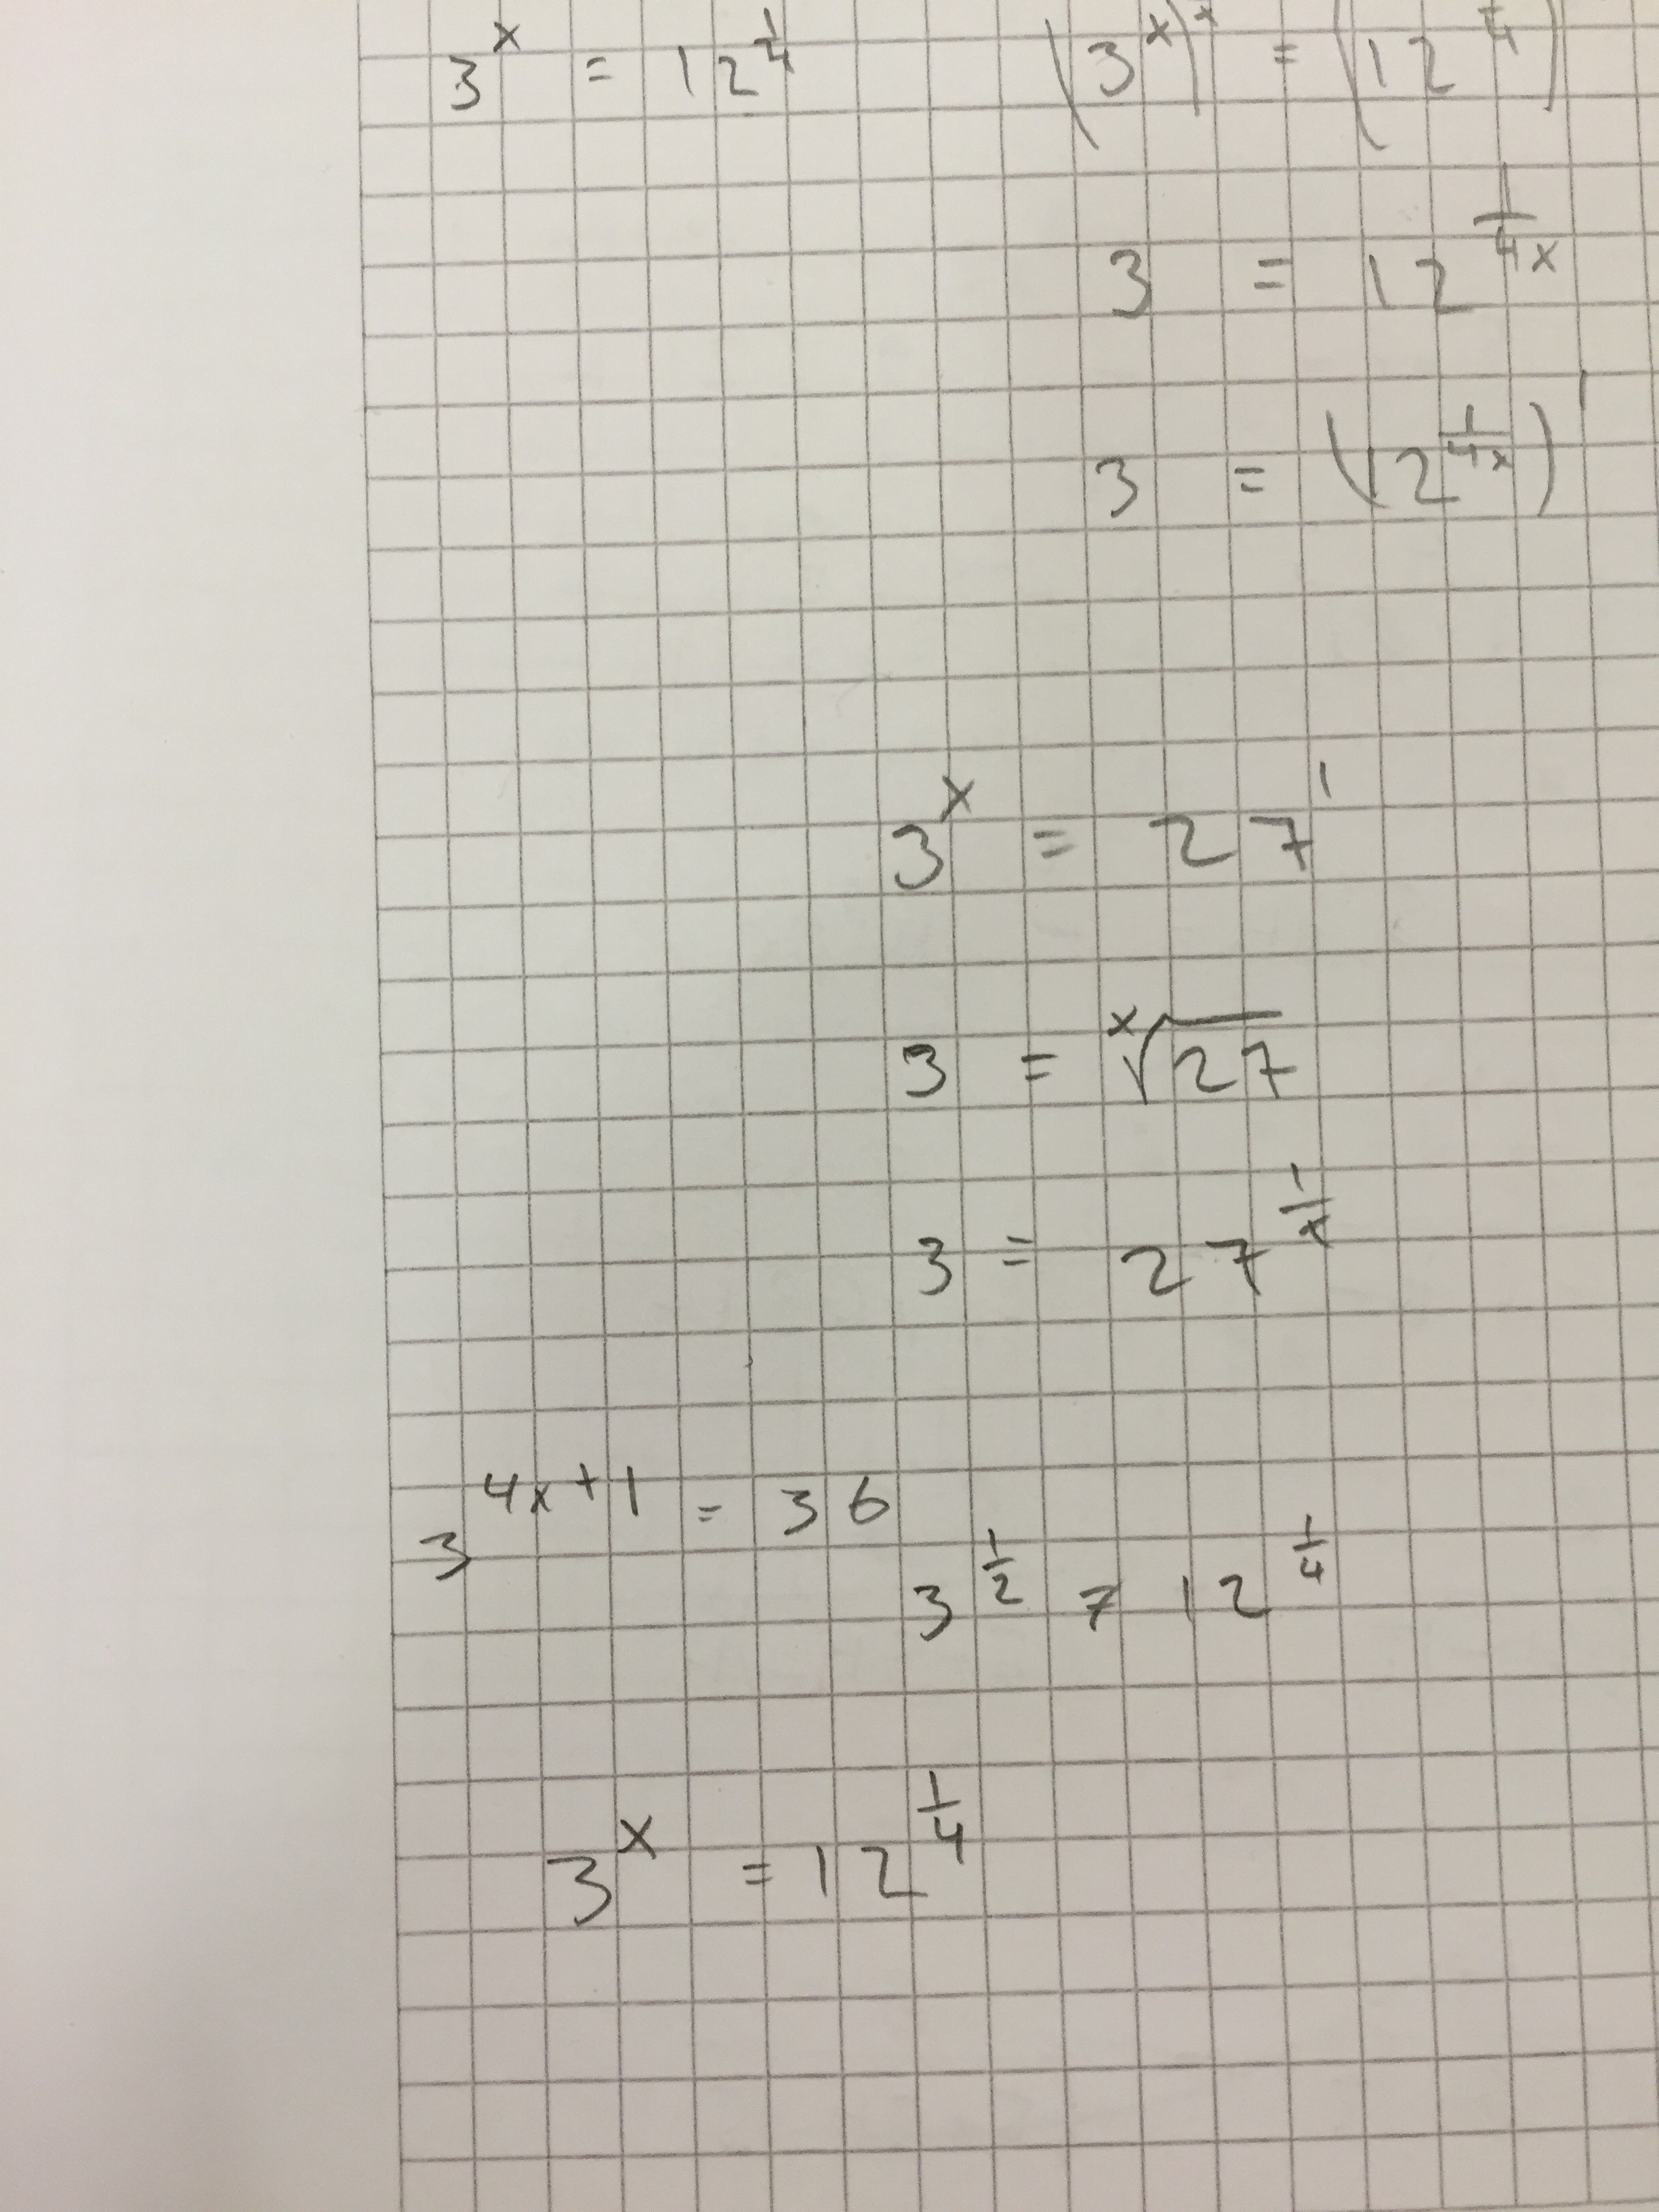 3^x = 12^(1/4)    (3^x)^x = (12^(1/4))
3 = 12^(1/(4x))
3 = (12^(1/(4x)))^1
3^x = 27^1
3 = ˣ√27
3 = 27^(1/x)
3^(4x+1) = 36
3^(1/2) 7 12^(1/4)
3^x = 12^(1/4)